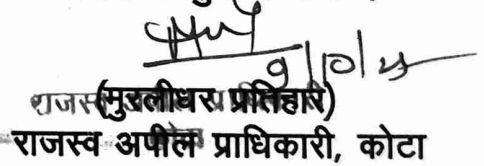 9/10/25
(मुरलीधर प्रतिहार)
राजस्व अपील प्राधिकारी, कोटा